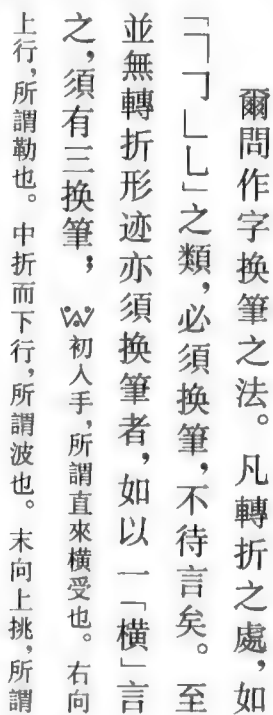 爾問作字换筆之法。凡轉折之處,如
「㇕𠃌𠃊乚」之類,必須换筆,不待言矣。至
並無轉折形迹亦須换筆者,如以一「橫」言
之,須有三换筆;初入手,所謂直來橫受也。右向
上行,所謂勒也。中折而下行,所謂波也。末向上挑,所謂